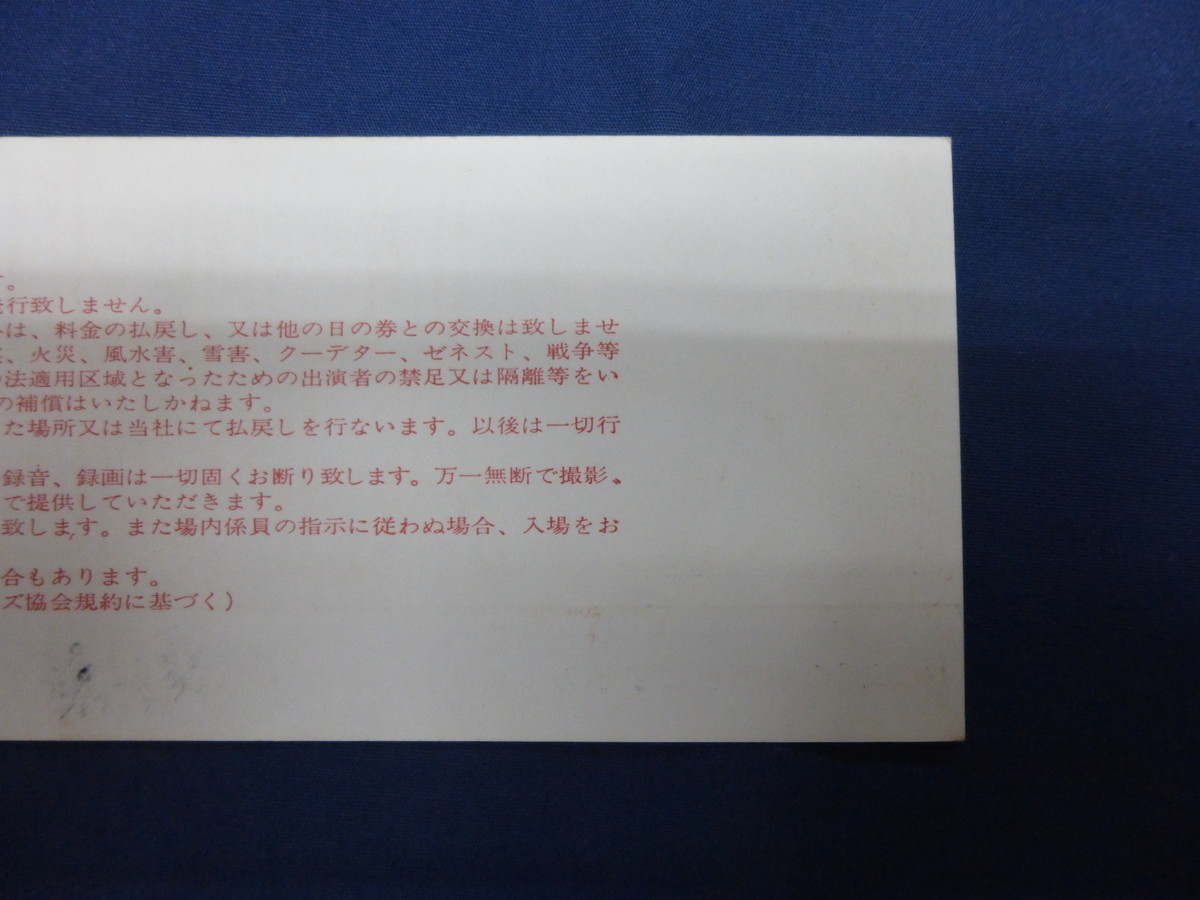 。
行致しません。
は、料金の払戻し、又は他の日の券との交換は致しませ
、火災、風水害、雪害、クーデター、ゼネスト、戦争等
法適用区域となったための出演者の禁足又は隔離等をい
の補償はいたしかねます。
た場所又は当社にて払戻しを行ないます。以後は一切行
録音、録画は一切固くお断り致します。万一無断で撮影、
で提供していただきます。
致します。また場内係員の指示に従わぬ場合、入場をお
合もあります。
ズ協会規約に基づく)